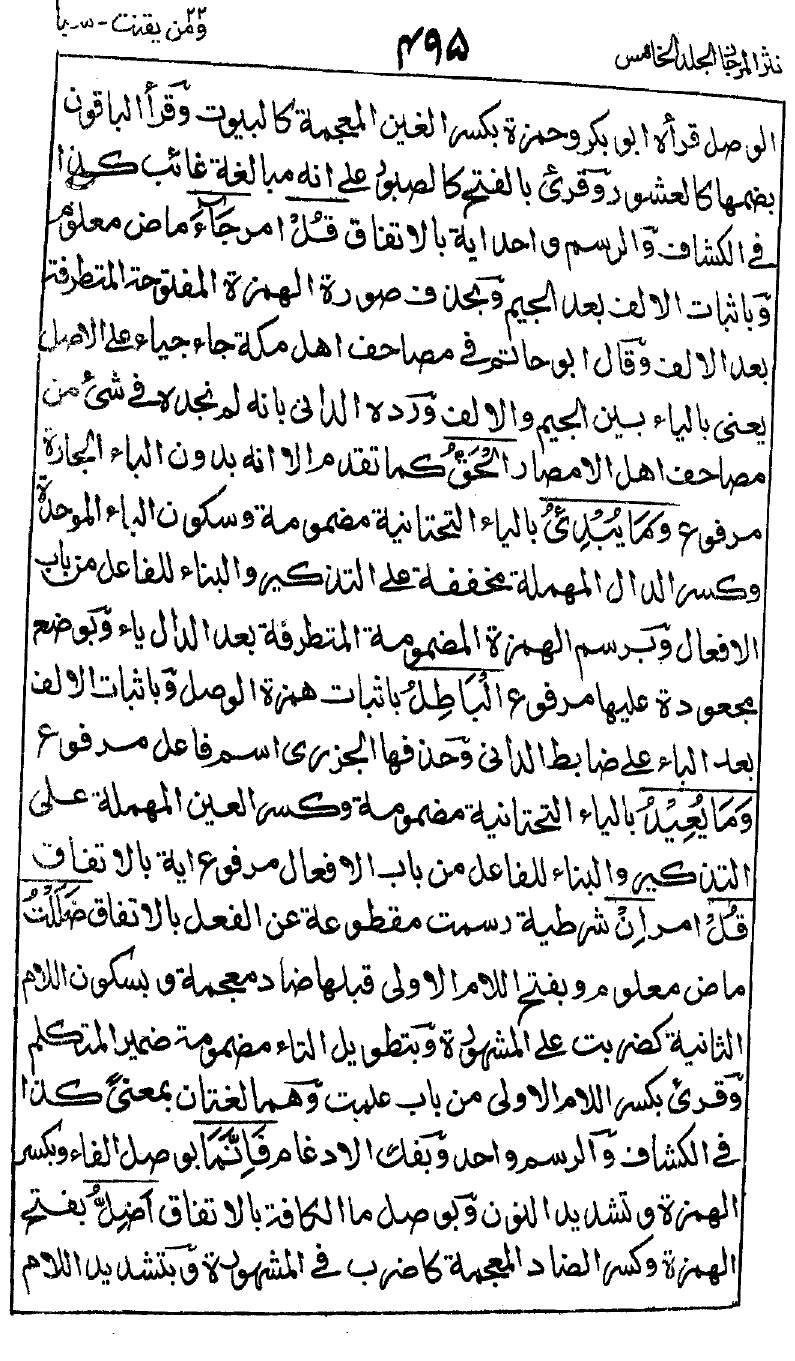 نثر المرجان المجلد الخامس
۴۹۵
ومن يقنت ۲۲ - سبا
الوصل قرأه ابو بكر وحمزة بكسر الغين المعجمة كالبيوت وقرأ الباقون
بضمها كالعشور وقرئ بالفتح كالصبور على انه مبالغة غائب كذا
في الكشاف والرسم واحد اية بالاتفاق قُلْ امر جَآءَ ماض معلوم
وباثبات الالف بعد الجيم وبحذف صورة الهمزة المفتوحة المتطرفة
بعد الالف وقال ابو حاتم في مصاحف اهل مكة جاء جياء على الاصل
يعنى بالياء بين الجيم والالف ورده الدانى بانه لم نجده في شئ من
مصاحف اهل الامصار الْحَقُّ كما تقدم الا انه بدون الباء الجارة
مرفوع وَمَا يُبْدِئُ بالياء التحتانية مضمومة وسكون الباء الموحدة
وكسر الدال المهملة مخففة على التذكير والبناء للفاعل من باب
الافعال وبرسم الهمزة المضمومة المتطرفة بعد الدال ياء وبوضع
مجعودة عليها مرفوع الْبَاطِلُ باثبات همزة الوصل وباثبات الالف
بعد الباء على ضابط الدانى وحذفها الجزرى اسم فاعل مرفوع
وَمَا يُعِيْدُ بالياء التحتانية مضمومة وكسر العين المهملة على
التذكير والبناء للفاعل من باب الافعال مرفوع اية بالاتفاق
قُلْ امر اِنْ شرطية رسمت مقطوعة عن الفعل بالاتفاق ضَلَلْتُ
ماض معلوم وبفتح اللام الاولى قبلها ضاد معجمة وبسكون اللام
الثانية كضربت على المشهورة وبتطويل التاء مضمومة ضمير المتكلم
وقرئ بكسر اللام الاولى من باب علمت وهما لغتان بمعنىً كذا
في الكشاف والرسم واحد وبفك الادغام فَاِنَّمَا بوصل الفاء وبكسر
الهمزة وتشديد النون وبوصل ما الكافة بالاتفاق اَضِلُّ بفتح
الهمزة وكسر الضاد المعجمة كاضرب في المشهورة وبتشديد اللام